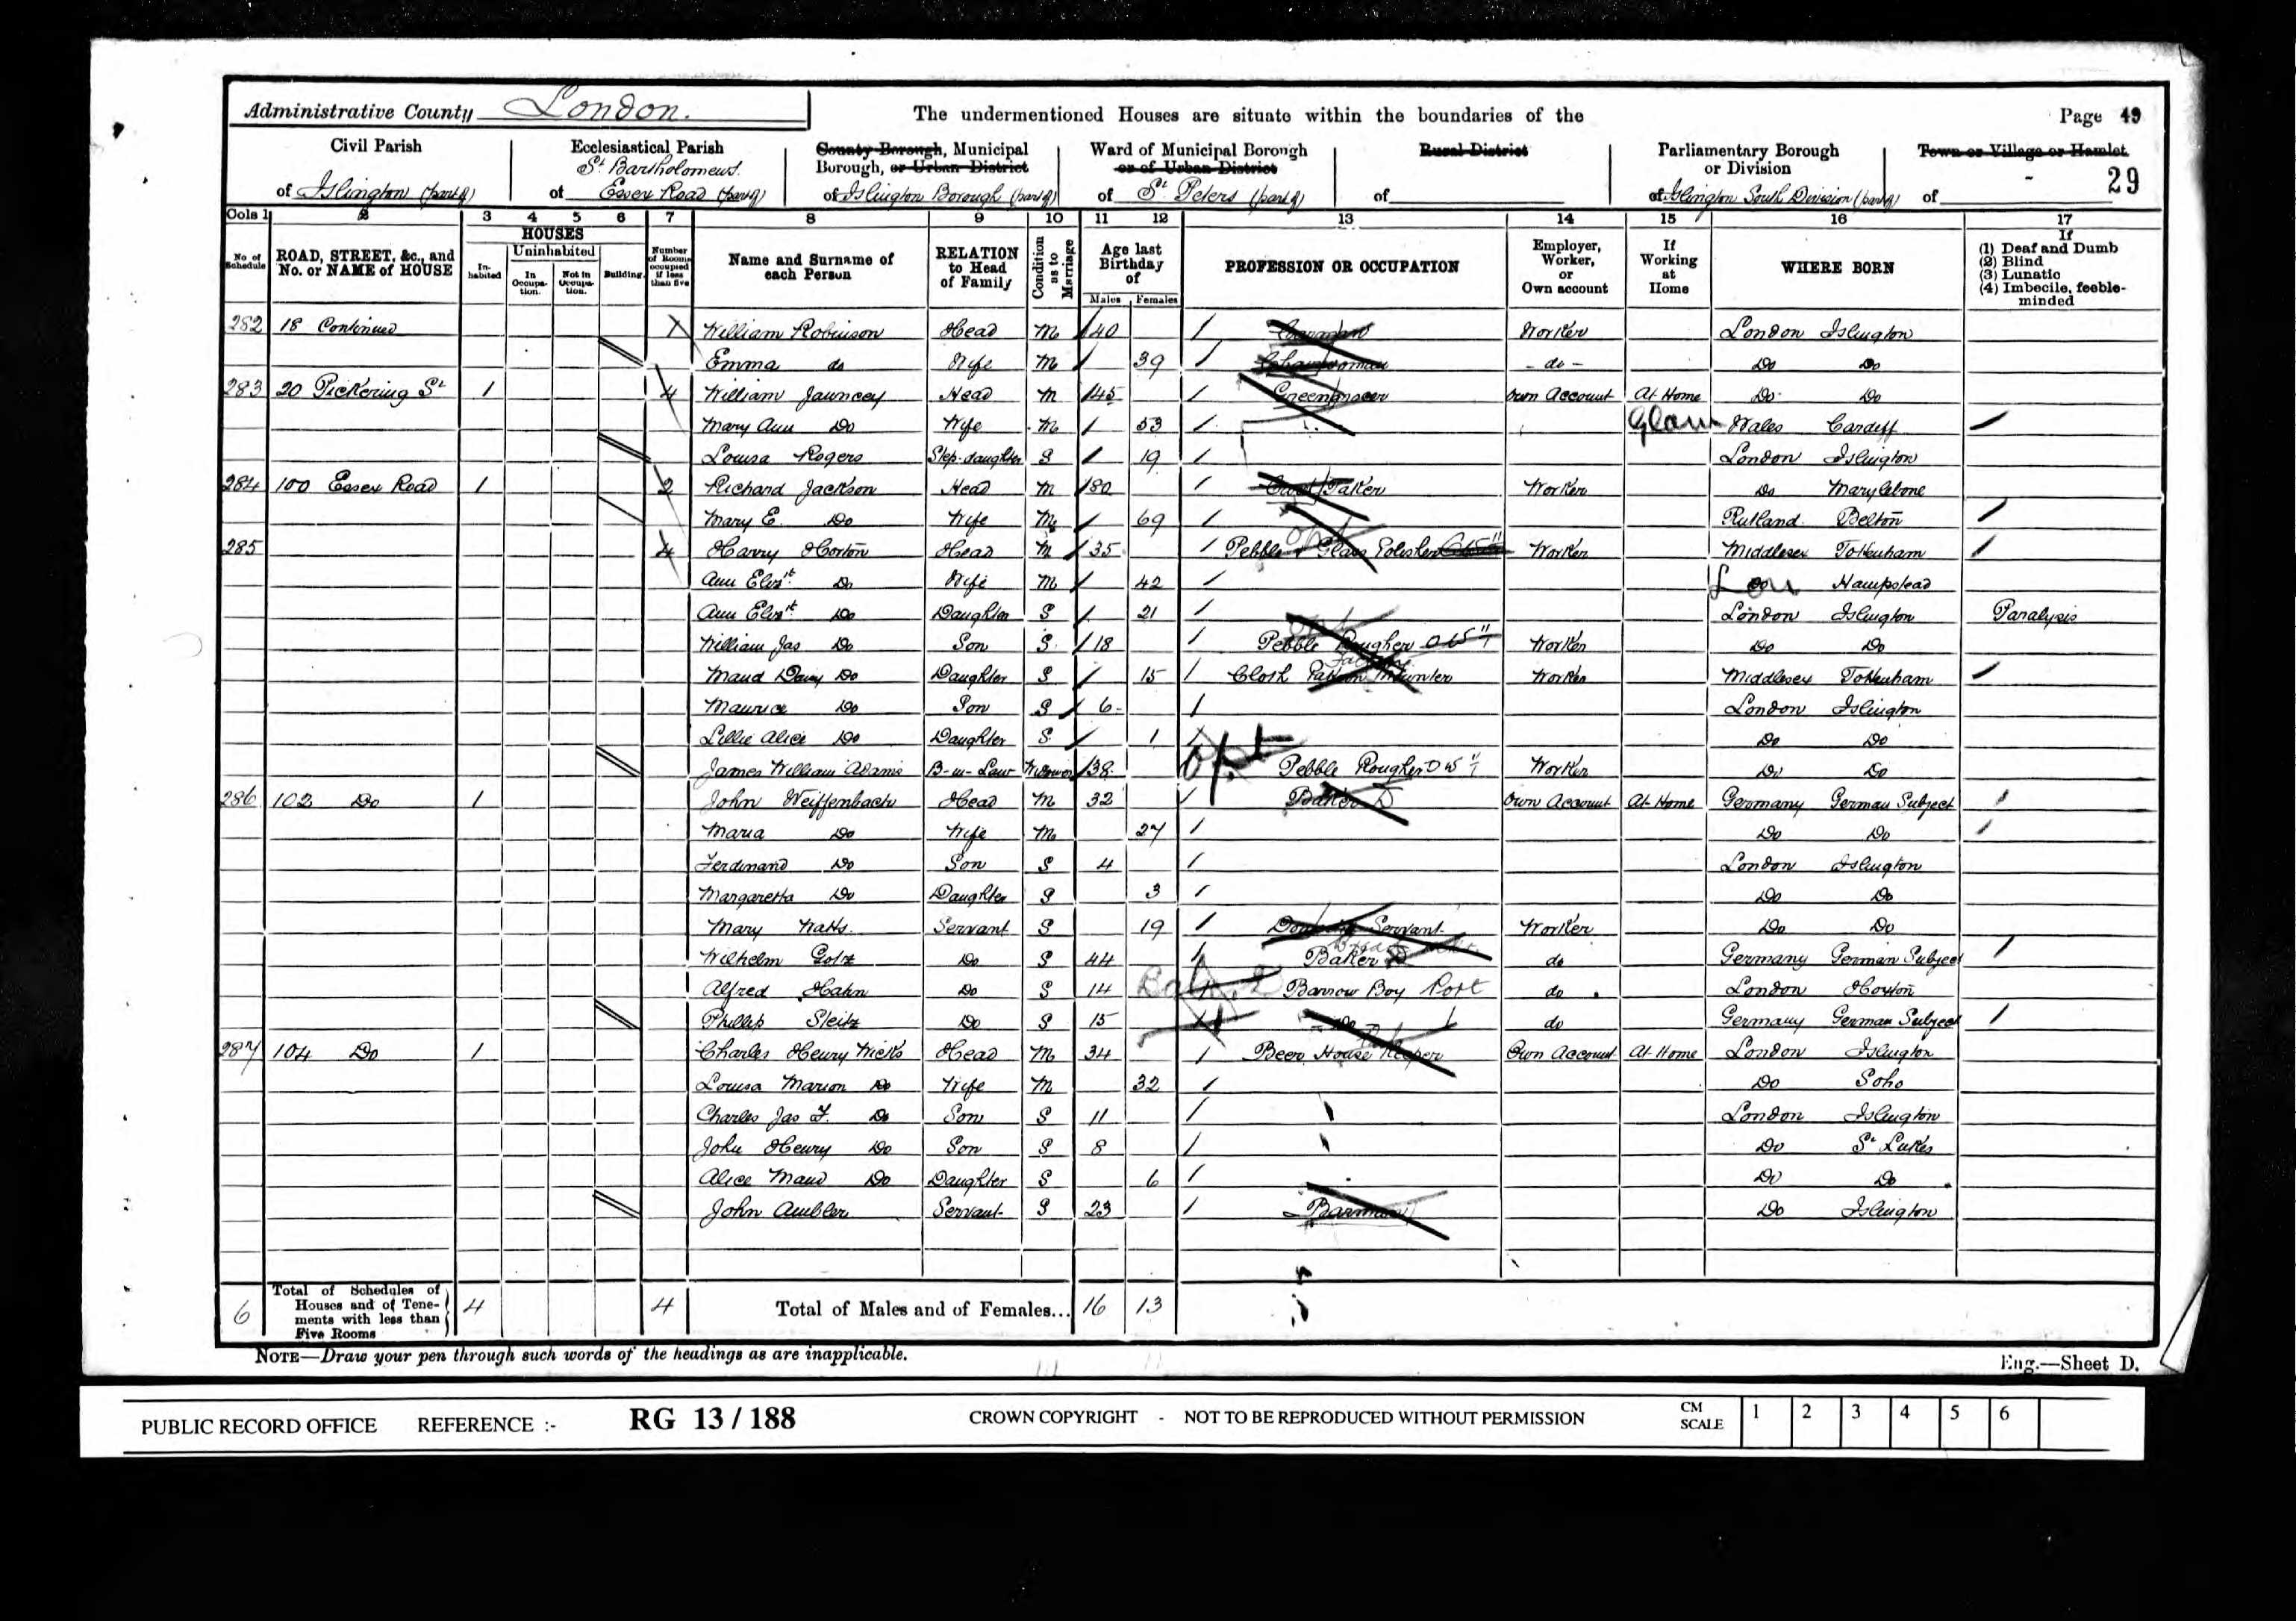 Administrative County London.
The undermentioned Houses are situate within the boundaries of the
Page 49
Civil Parish
of Islington (part of)
Ecclesiastical Parish
St Bartholomews.
of Essex Road (part of)
County Borough, Municipal
Borough, or Urban District
of Islington Borough (part of)
Ward of Municipal Borough
or of Urban District
of St Peters (part of)
Rural District
of
Parliamentary Borough
or Division
of Islington South Division (part of)
Town or Village or Hamlet
of -
29
Cols 1 2 3 4 5 6 7 8 9 10 11 12 13 14 15 16 17
No. of Schedule
ROAD, STREET, &c., and No. or NAME of HOUSE
HOUSES
In-habited
Uninhabited
In Occupa-tion.
Not in Occupa-tion.
Building
Number of Rooms occupied if less than five
Name and Surname of each Person
RELATION to Head of Family
Condition as to Marriage
Age last Birthday of
Males Females
PROFESSION OR OCCUPATION
Employer, Worker, or Own account
If Working at Home
WHERE BORN
If
(1) Deaf and Dumb
(2) Blind
(3) Lunatic
(4) Imbecile, feeble-minded
282 18 Continued 1 William Robinson Head M 40 Carman Worker London Islington
Emma do Wife M 39 Charwoman - do - Do Do
283 20 Pickering St 1 4 William Jauncey Head M 45 Greengrocer Own Account At Home Do Do
Mary Ann Do Wife M 53 Glam Wales Cardiff
Louisa Rogers Step-daughter S 19 London Islington
284 100 Essex Road 1 2 Richard Jackson Head M 80 Taker Worker Do Marylebone
Mary E. Do Wife M 69 Rutland Belton
285 4 Harry Horton Head M 35 Pebble & Glass Polisher Worker Middlesex Tottenham
Ann Elizth Do Wife M 42 Lon Hampstead
Ann Elizth Do Daughter S 21 London Islington Paralysis
William Jas Do Son S 18 Pebble Rougher Worker Do Do
Maud Daisy Do Daughter S 15 Cloth Pattern Mounter Worker Middlesex Tottenham
Maurice Do Son S 6 London Islington
Lillie Alice Do Daughter S 1 Do Do
James William Adams B-in-Law Widower 38 Opt Pebble Rougher Worker Do Do
286 102 Do 1 John Weiffenbach Head M 32 Baker Own Account At Home Germany German Subject
Maria Do Wife M 27 Do Do
Ferdinand Do Son S 4 London Islington
Margaretta Do Daughter S 3 Do Do
Mary Watts Servant S 19 Domestic Servant Worker Do Do
Wilhelm Goltz Do S 44 Baker Bread do Germany German Subject
Alfred Hahn Do S 14 Barrow Boy Port do London Hoxton
Phillip Steitz Do S 15 Do do Germany German Subject
287 104 Do 1 Charles Henry Wicks Head M 34 Beer House Keeper Own Account At Home London Islington
Louisa Marion Do Wife M 32 Do Soho
Charles Jas F. Do Son S 11 London Islington
John Henry Do Son S 8 Do St Lukes
Alice Maud Do Daughter S 6 Do Do
John Ambler Servant S 23 Barman Do Islington
6 Total of Schedules of Houses and of Tene-ments with less than Five Rooms 4 4 Total of Males and of Females... 16 13
NOTE—Draw your pen through such words of the headings as are inapplicable.
Eng.—Sheet D.
PUBLIC RECORD OFFICE REFERENCE :- RG 13 / 188 CROWN COPYRIGHT - NOT TO BE REPRODUCED WITHOUT PERMISSION CM SCALE 1 2 3 4 5 6